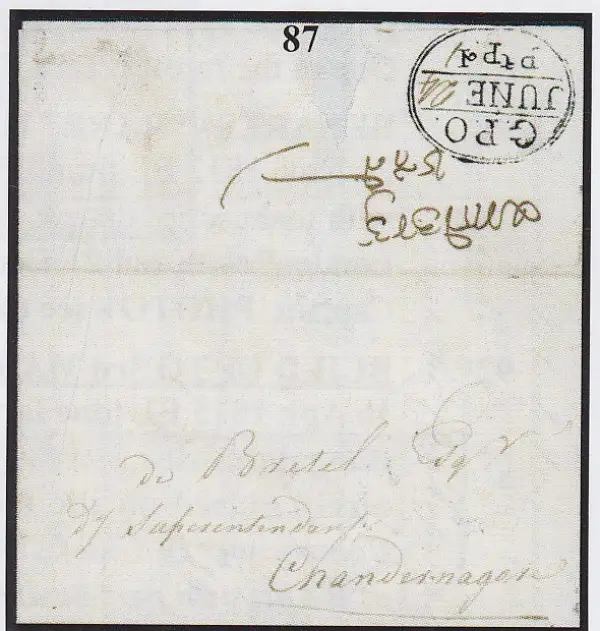 87
G.P.O.
JUNE 24
ptpd
de Bretel Esqr
Dy Superintendant
Chandernagore